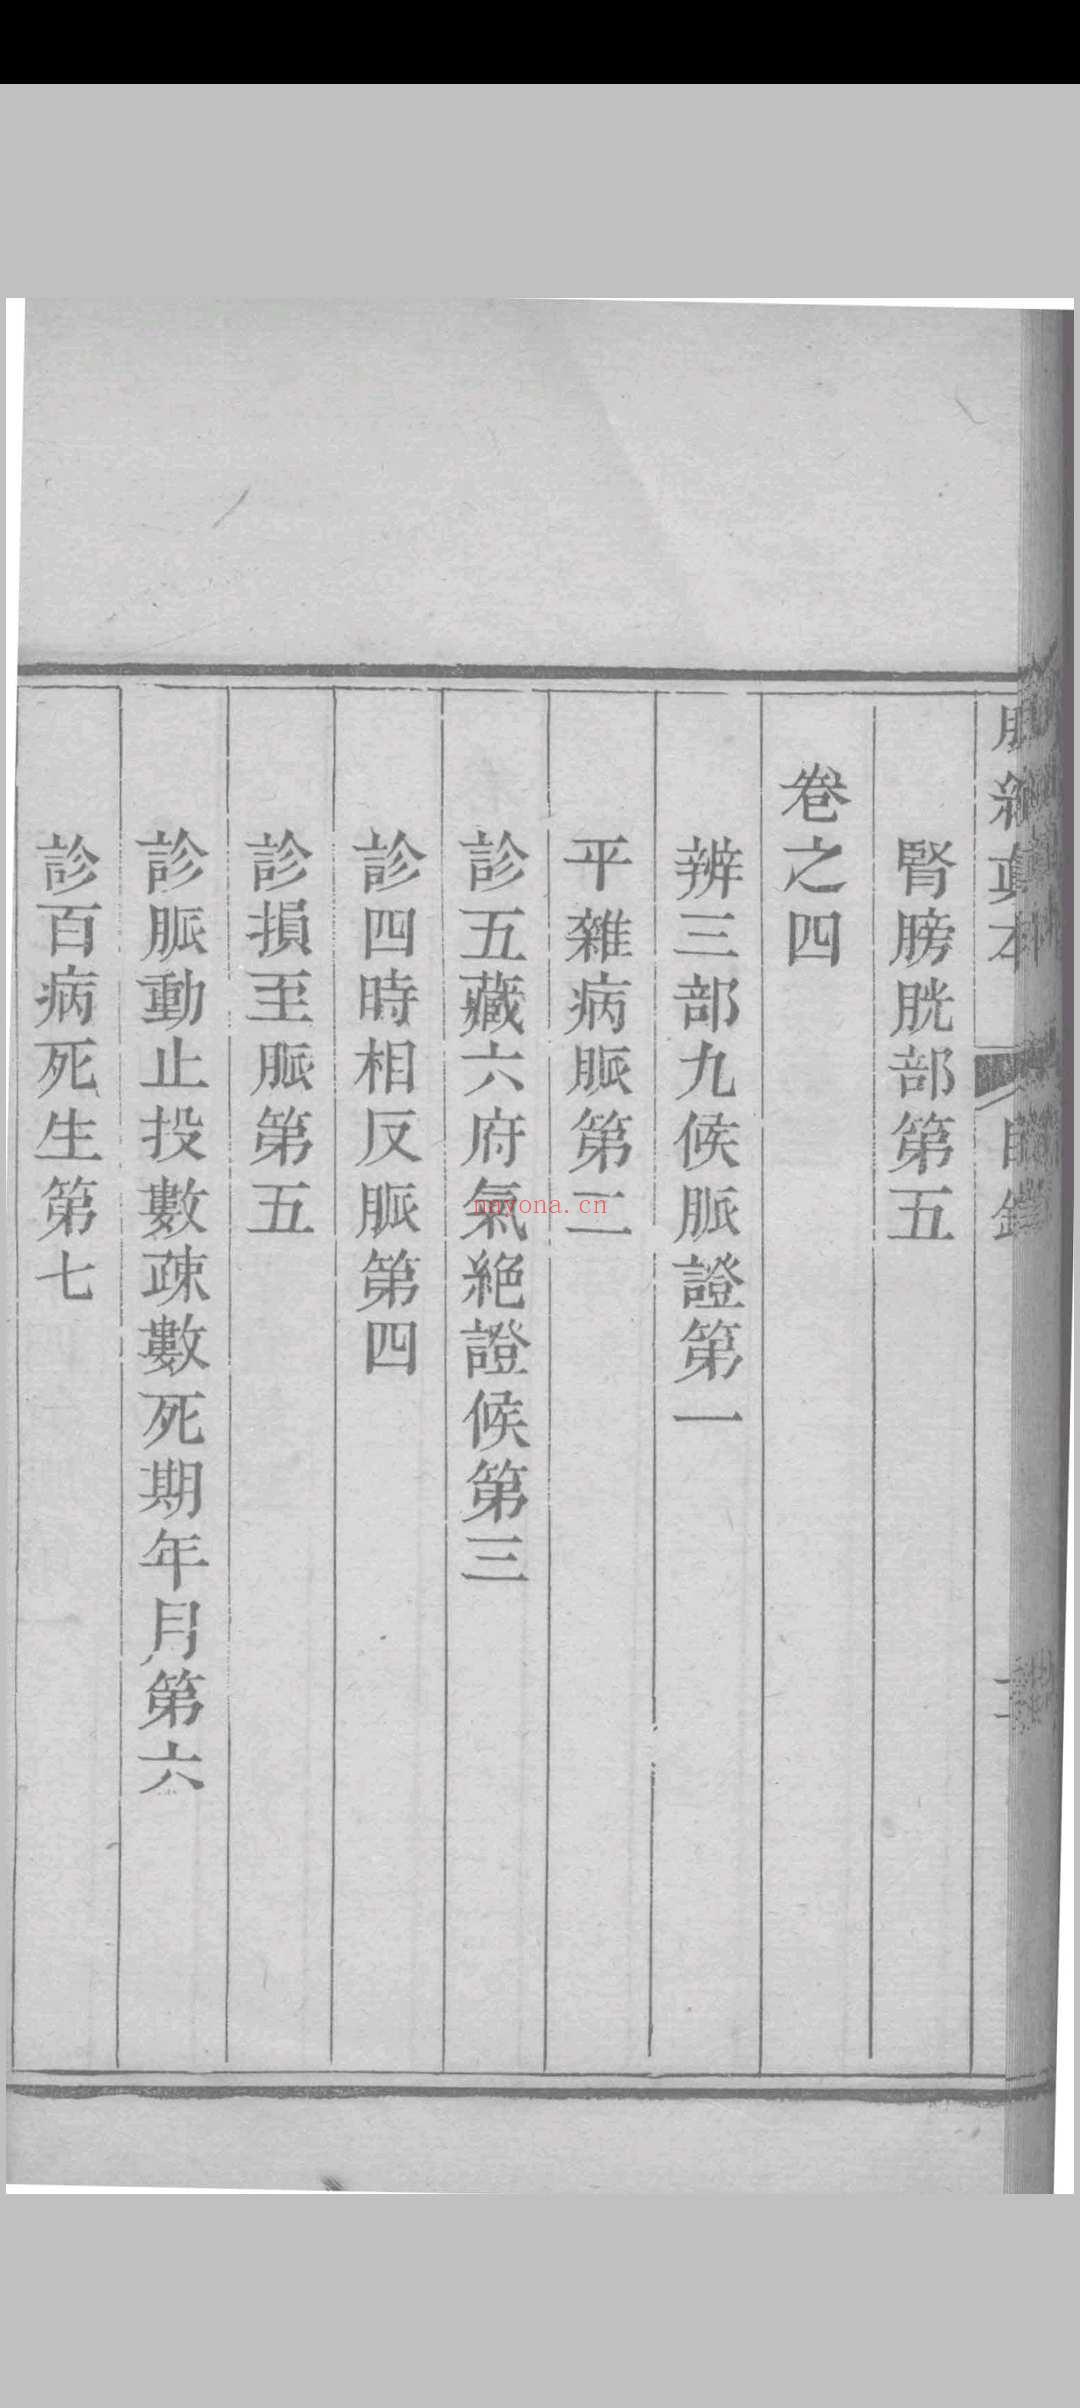 腎膀胱部第五
卷之四
辨三部九候脈證第一
平雜病脈第二
診五藏六府氣絕證候第三
診四時相反脈第四
診損至脈第五
診脈動止投數疎數死期年月第六
診百病死生第七
nayona.cn